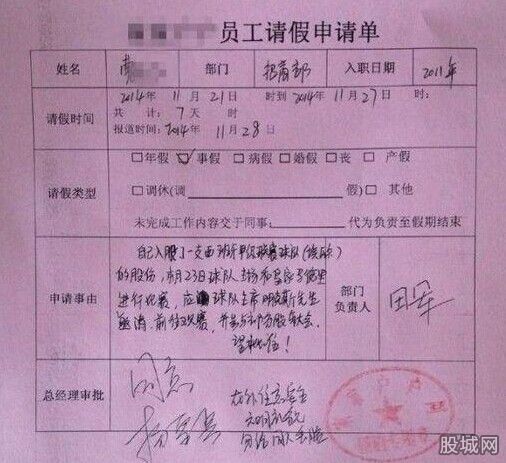 员工请假申请单
姓名 部门 招商部 入职日期 2011年
请假时间
2014年 11月 21日 时到 2014年 11月 27日 时:
共 计: 7 天 时:
报道时间: 2014年 11月 28日
请假类型
□年假 ☑事假 □病假 □婚假 □丧 □产假
□调休(调 假) □ 其他
未完成工作内容交于同事: 代为负责至假期结束
申请事由
自己入股了一支西班牙甲级联赛球队(埃瓦尔)
的股份，本月23日球队主场和皇家马德里
进行比赛，应球队主席阿 斯先生
邀请，前往观赛，并 股东大会，
望批准！
部门
负责人
田军
总经理审批
同意
在外注意安全
股城网
Gucheng.com